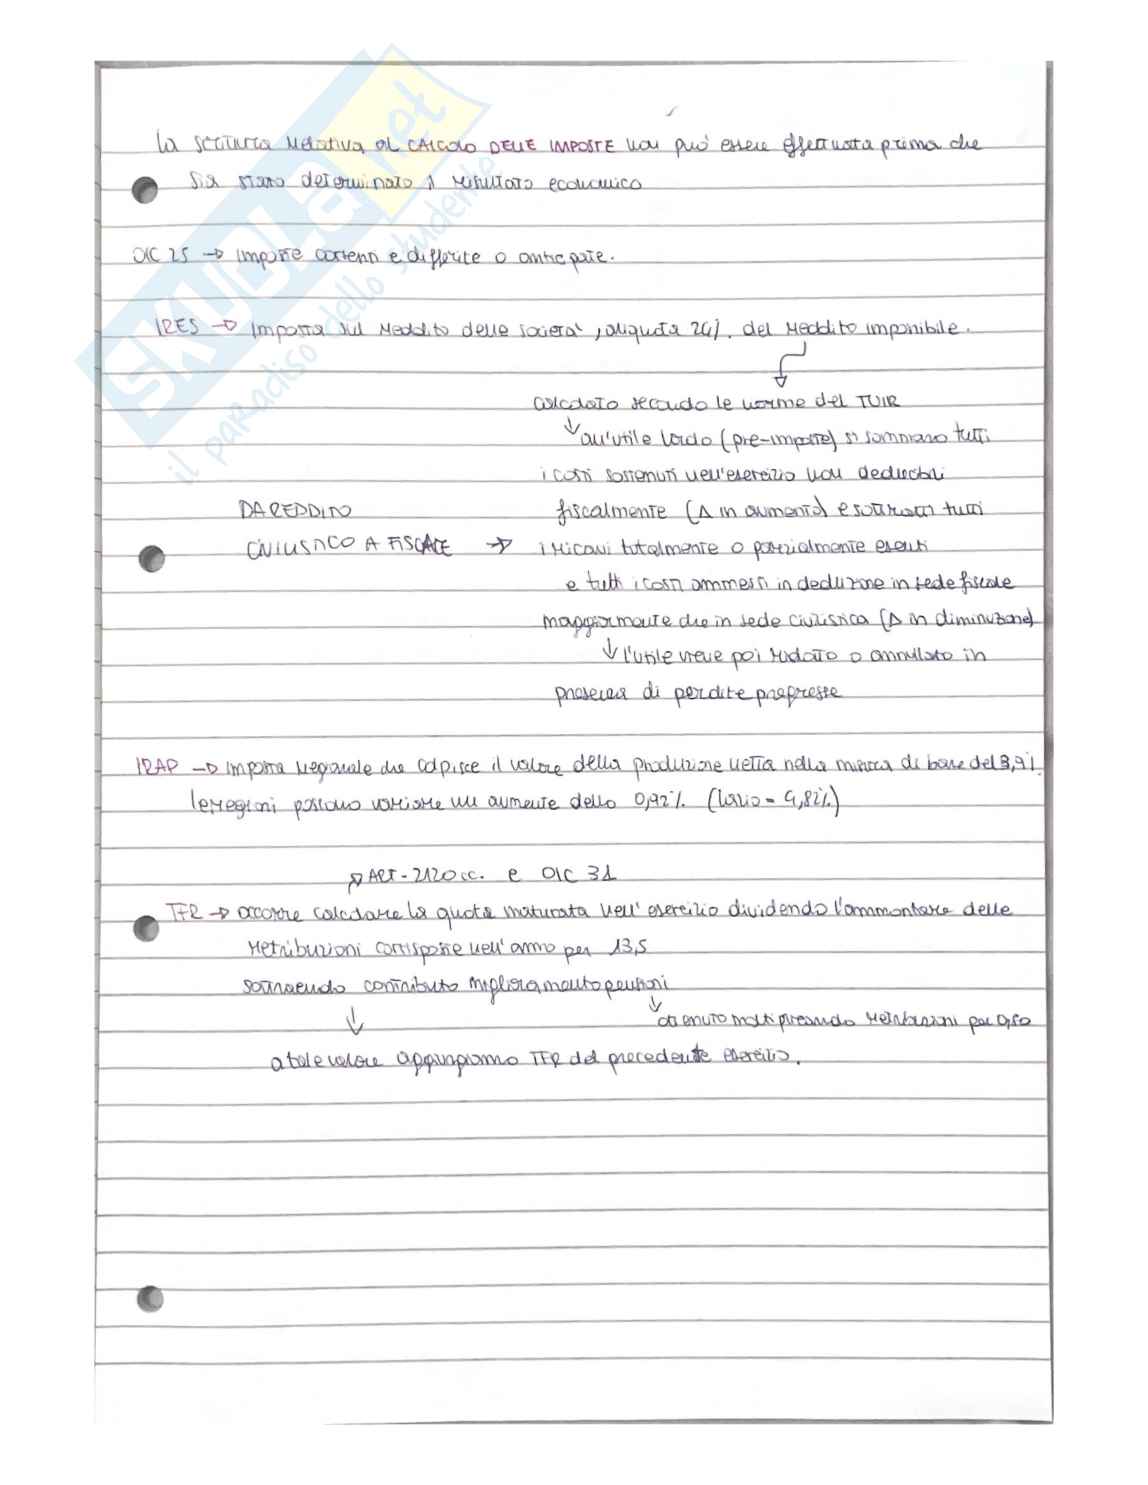 SKUOLA.net
il paradiso dello studente
La scrittura relativa al CALCOLO DELLE IMPOSTE non può essere effettuata prima che
sia stato determinato il risultato economico
OIC 25 → imposte correnti e differite o anticipate.
IRES → imposta sul reddito delle società, aliquota 24%. del reddito imponibile.
calcolato secondo le norme del TUIR
↓ all'utile lordo (pre-imposte) si sommano tutti
i costi sostenuti nell'esercizio non deducibili
DA REDDITO fiscalmente (Δ in aumento) e sottratti tutti
CIVILISTICO A FISCALE → i ricavi totalmente o parzialmente esenti
e tutti i costi ammessi in deduzione in sede fiscale
maggiormente che in sede civilistica (Δ in diminuzione)
↓ l'utile viene poi ridotto o annullato in
presenza di perdite pregresse
IRAP → imposta regionale che colpisce il valore della produzione netta nella misura di base del 3,9%.
le regioni possono variare un aumente dello 0,92%. (Lazio = 4,82%)
ART. 2120 cc. e OIC 31
TFR → occorre calcolare la quota maturata nell'esercizio dividendo l'ammontare delle
retribuzioni corrisposte nell'anno per 13,5
sottraendo contributo miglioramento pensioni
↓ ottenuto moltiplicando retribuzioni per 0,50
a tale valore aggiungiamo TFR del precedente esercizio.